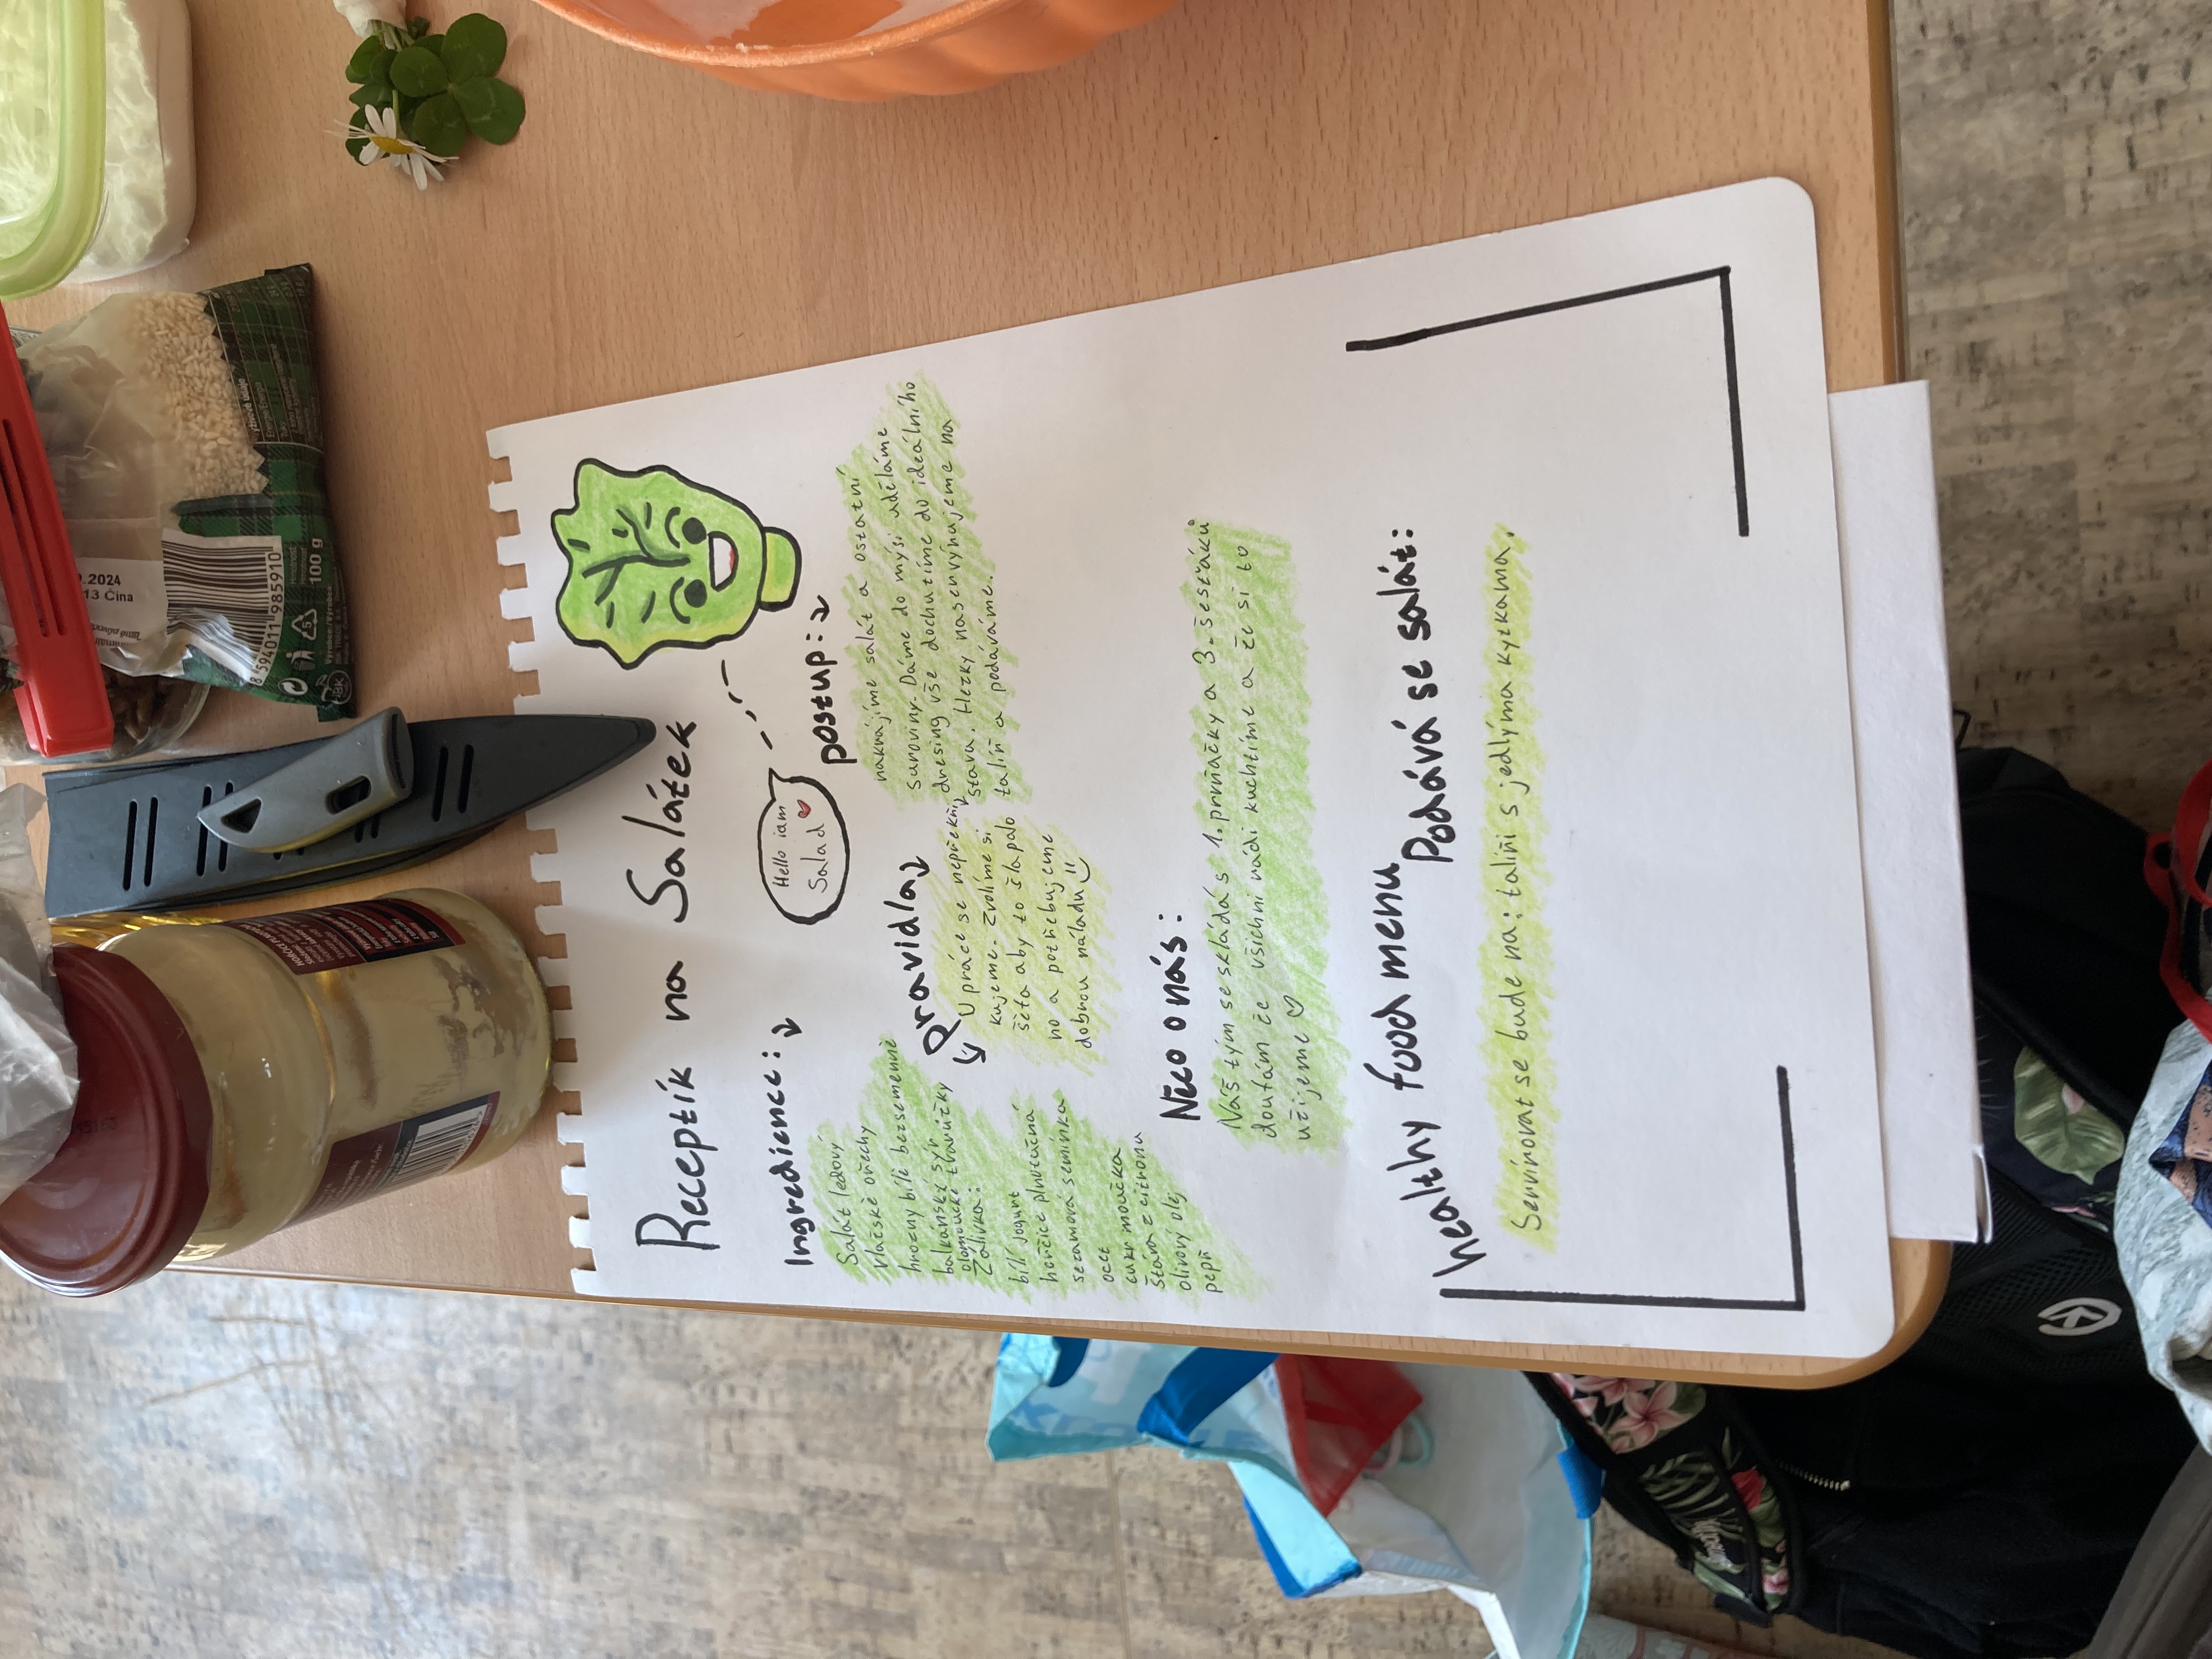 Receptík na Salátek
Hello iam
Salad
Ingredience:
Salát ledový
vlašské ořechy
hrozny bílé bezsemenné
balkánský sýr
olomoucké tvarůžky
Zálivka:
bílí jogurt
hořčice plnotučná
sezamová semínka
ocet
cukr moučka
šťáva z citronu
olivový olej
pepř
Pravidla
U práce se nepřekři
kujeme. Zvolíme si
šéfa aby to šlapalo
no a potřebujeme
dobrou náladu
postup:
nakrájíme salát a ostatní
suroviny. Dáme do mysi uděláme
dresing vše dochutíme do ideálního
stavu. Hezky naservýrujeme na
talíř a podáváme.
Něco o nás:
Náš tým se skládá s 1. prvňačky a 3. šesťáků
doufám že všichni rádi kuchtíme a že si to
užijeme
healthy food menu
Podává se salát:
Servírovat se bude na: talíři s jedlýma kytkama.
.2024
13 Čina
8 594011 985910
100 g
Výrobce/Výrobca